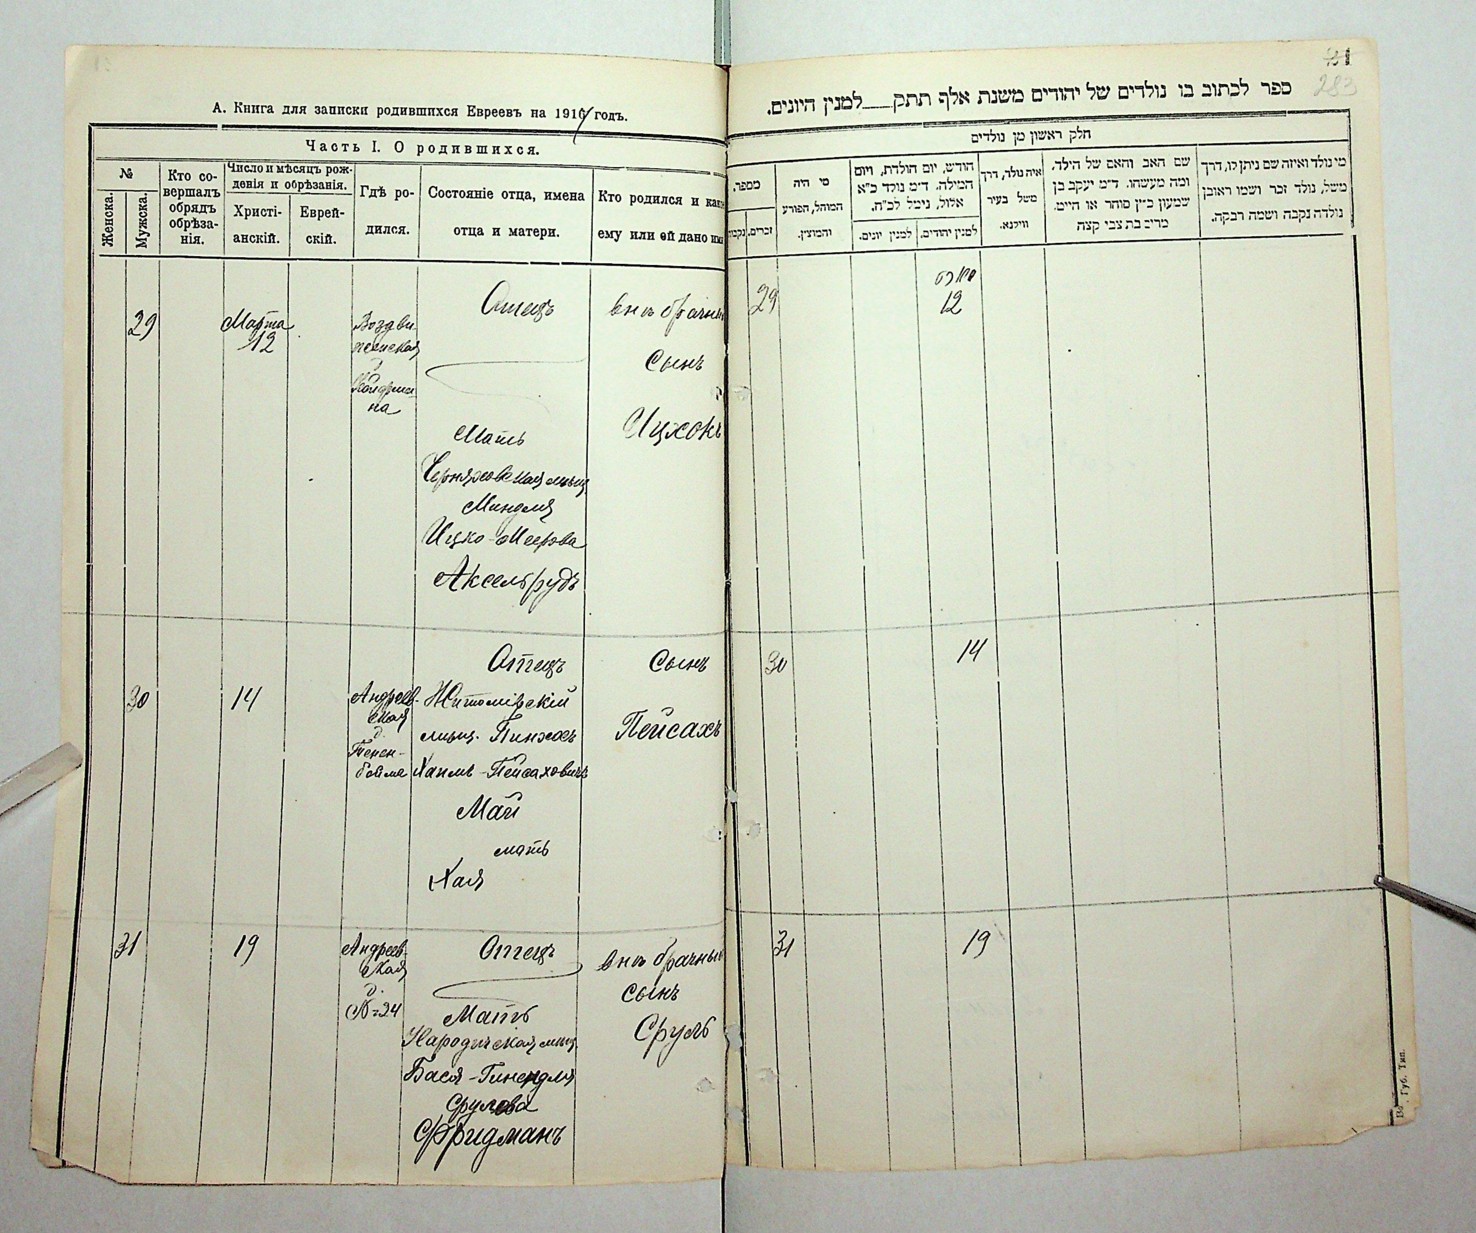 А. Книга для записки родившихся Евреевъ на 1917 годъ.
Часть I. О родившихся.
№
Женска.
Мужска.
Кто со-
вершалъ
обрядъ
обрѣза-
нія.
Число и мѣсяцъ рож-
денія и обрѣзанія.
Христі-
анскій.
Еврей-
скій.
Гдѣ ро-
дился.
Состояніе отца, имена
отца и матери.
Кто родился и как
ему или ей дано имя
29
Марта
12
Воздви
женская
д
на
Отецъ
Мать
Черняховская мѣщ
Миндля
Ицко-Меерова
Аксельрудъ
внѣ брачный
Сынъ
Ицхокъ
30
14
Андреев-
ская
д.
Тенен-
бойма
Отецъ
Житомірскій
мѣщ. Пинхасъ
Хаимъ-Пейсаховичъ
Май
мать
Хая
Сынъ
Пейсахъ
31
19
Андреев-
ская
д.
№24
Отецъ
Мать
Народичская мѣщ.
Бася-Гинендля
Срулева
Фридманъ
внѣ брачный
сынъ
Сруль
283
ספר לכתוב בו נולדים של יהודים משנת אלף תתק___למנין היונים.
חלק ראשון מן נולדים
מי נולד ואיזה שם ניתן לו, דרך
משל, נולד זכר ושמו ראובן
נולדה נקבה ושמה רבקה.
שם האב והאם של הילד.
ומה מעשהו. ד״מ יעקב בן
שמעון כ״ץ סוחר או היימ.
מריב בת צבי קצה
איה נולד, דרך
משל בעיר
ווילנא.
הודש, יום הולדת, ויום
המילה. ד״מ נולד כ״א
אלול, נימל לכ״ח.
למנין יהודים.
למנין יונים.
מי היה
המוהל, הפורע
והמוצץ.
מספר.
זכרים.
נקבות
29
12
30
14
31
19
Губ. Тип.